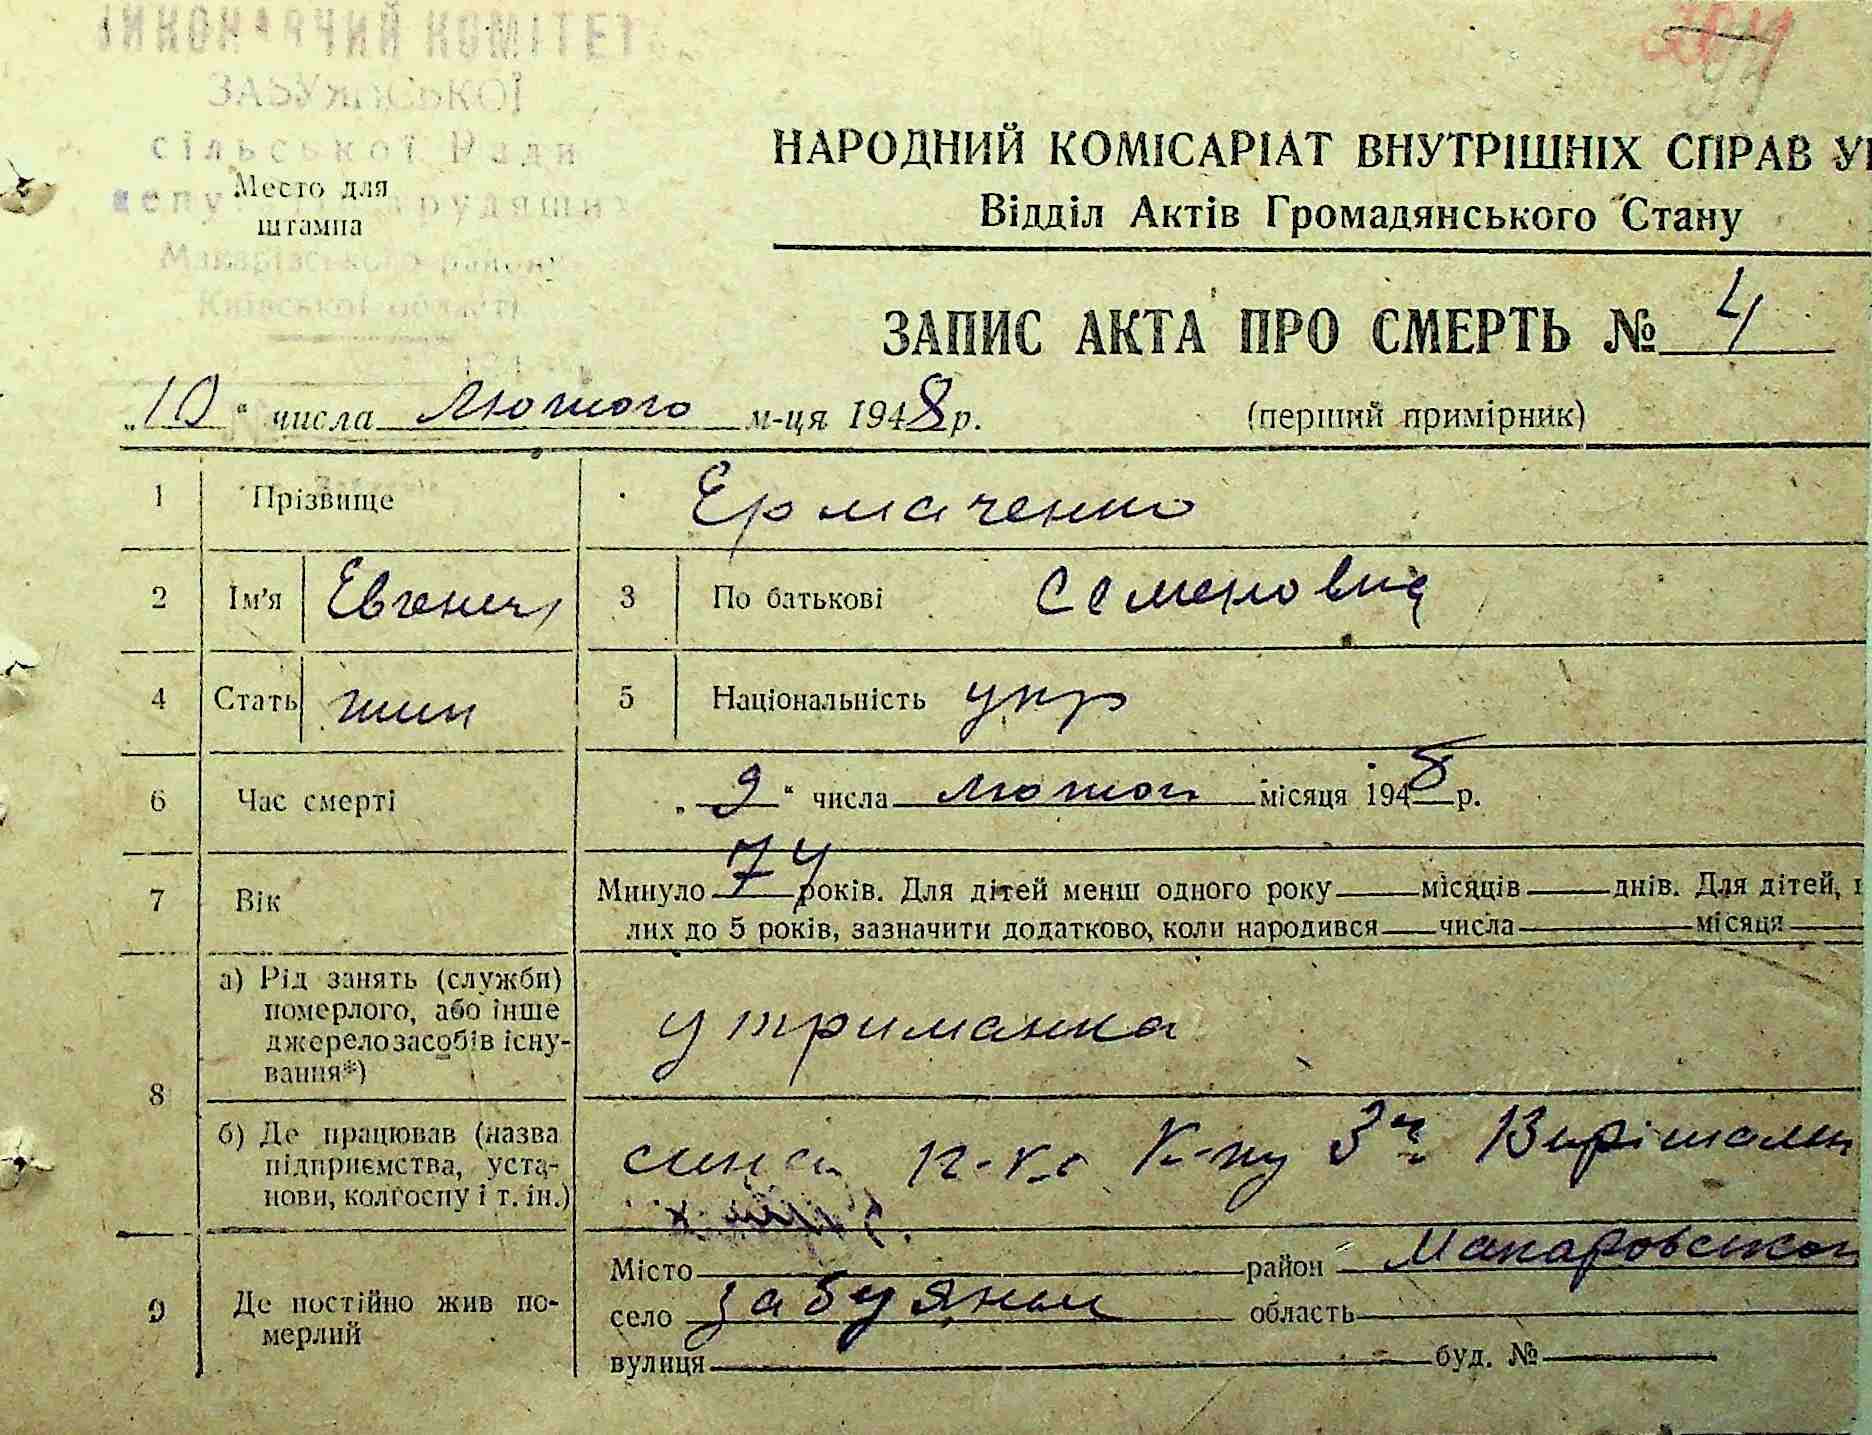 ВИКОНАВЧИЙ КОМІТЕТ
ЗАБУЯНСЬКОЇ
сільської Ради
депу трудящих
Макарівського району
Київської області
Место для
штампа
НАРОДНИЙ КОМІСАРІАТ ВНУТРІШНІХ СПРАВ У
Відділ Актів Громадянського Стану
ЗАПИС АКТА ПРО СМЕРТЬ № 4
„10“ числа Лютого м-ця 1948 р. (перший примірник)
1 Прізвище Ермаченко
2 Ім'я Евгения 3 По батькові Семеновна
4 Стать жин 5 Національність укр
6 Час смерті „9“ числа лютого місяця 1948 р.
7 Вік Минуло 74 років. Для дітей менш одного року місяців днів. Для дітей,
лих до 5 років, зазначити додатково, коли народився числа місяця
8 а) Рід занять (служби)
померлого, або інше
джерело засобів існу-
вання*)
утриманка
б) Де працював (назва
підприємства, уста-
нови, колгоспу і т. ін.)
сина к-п
9 Де постійно жив по-
мерлий
Місто район Макаровського
село Забуяння область
вулиця буд. №